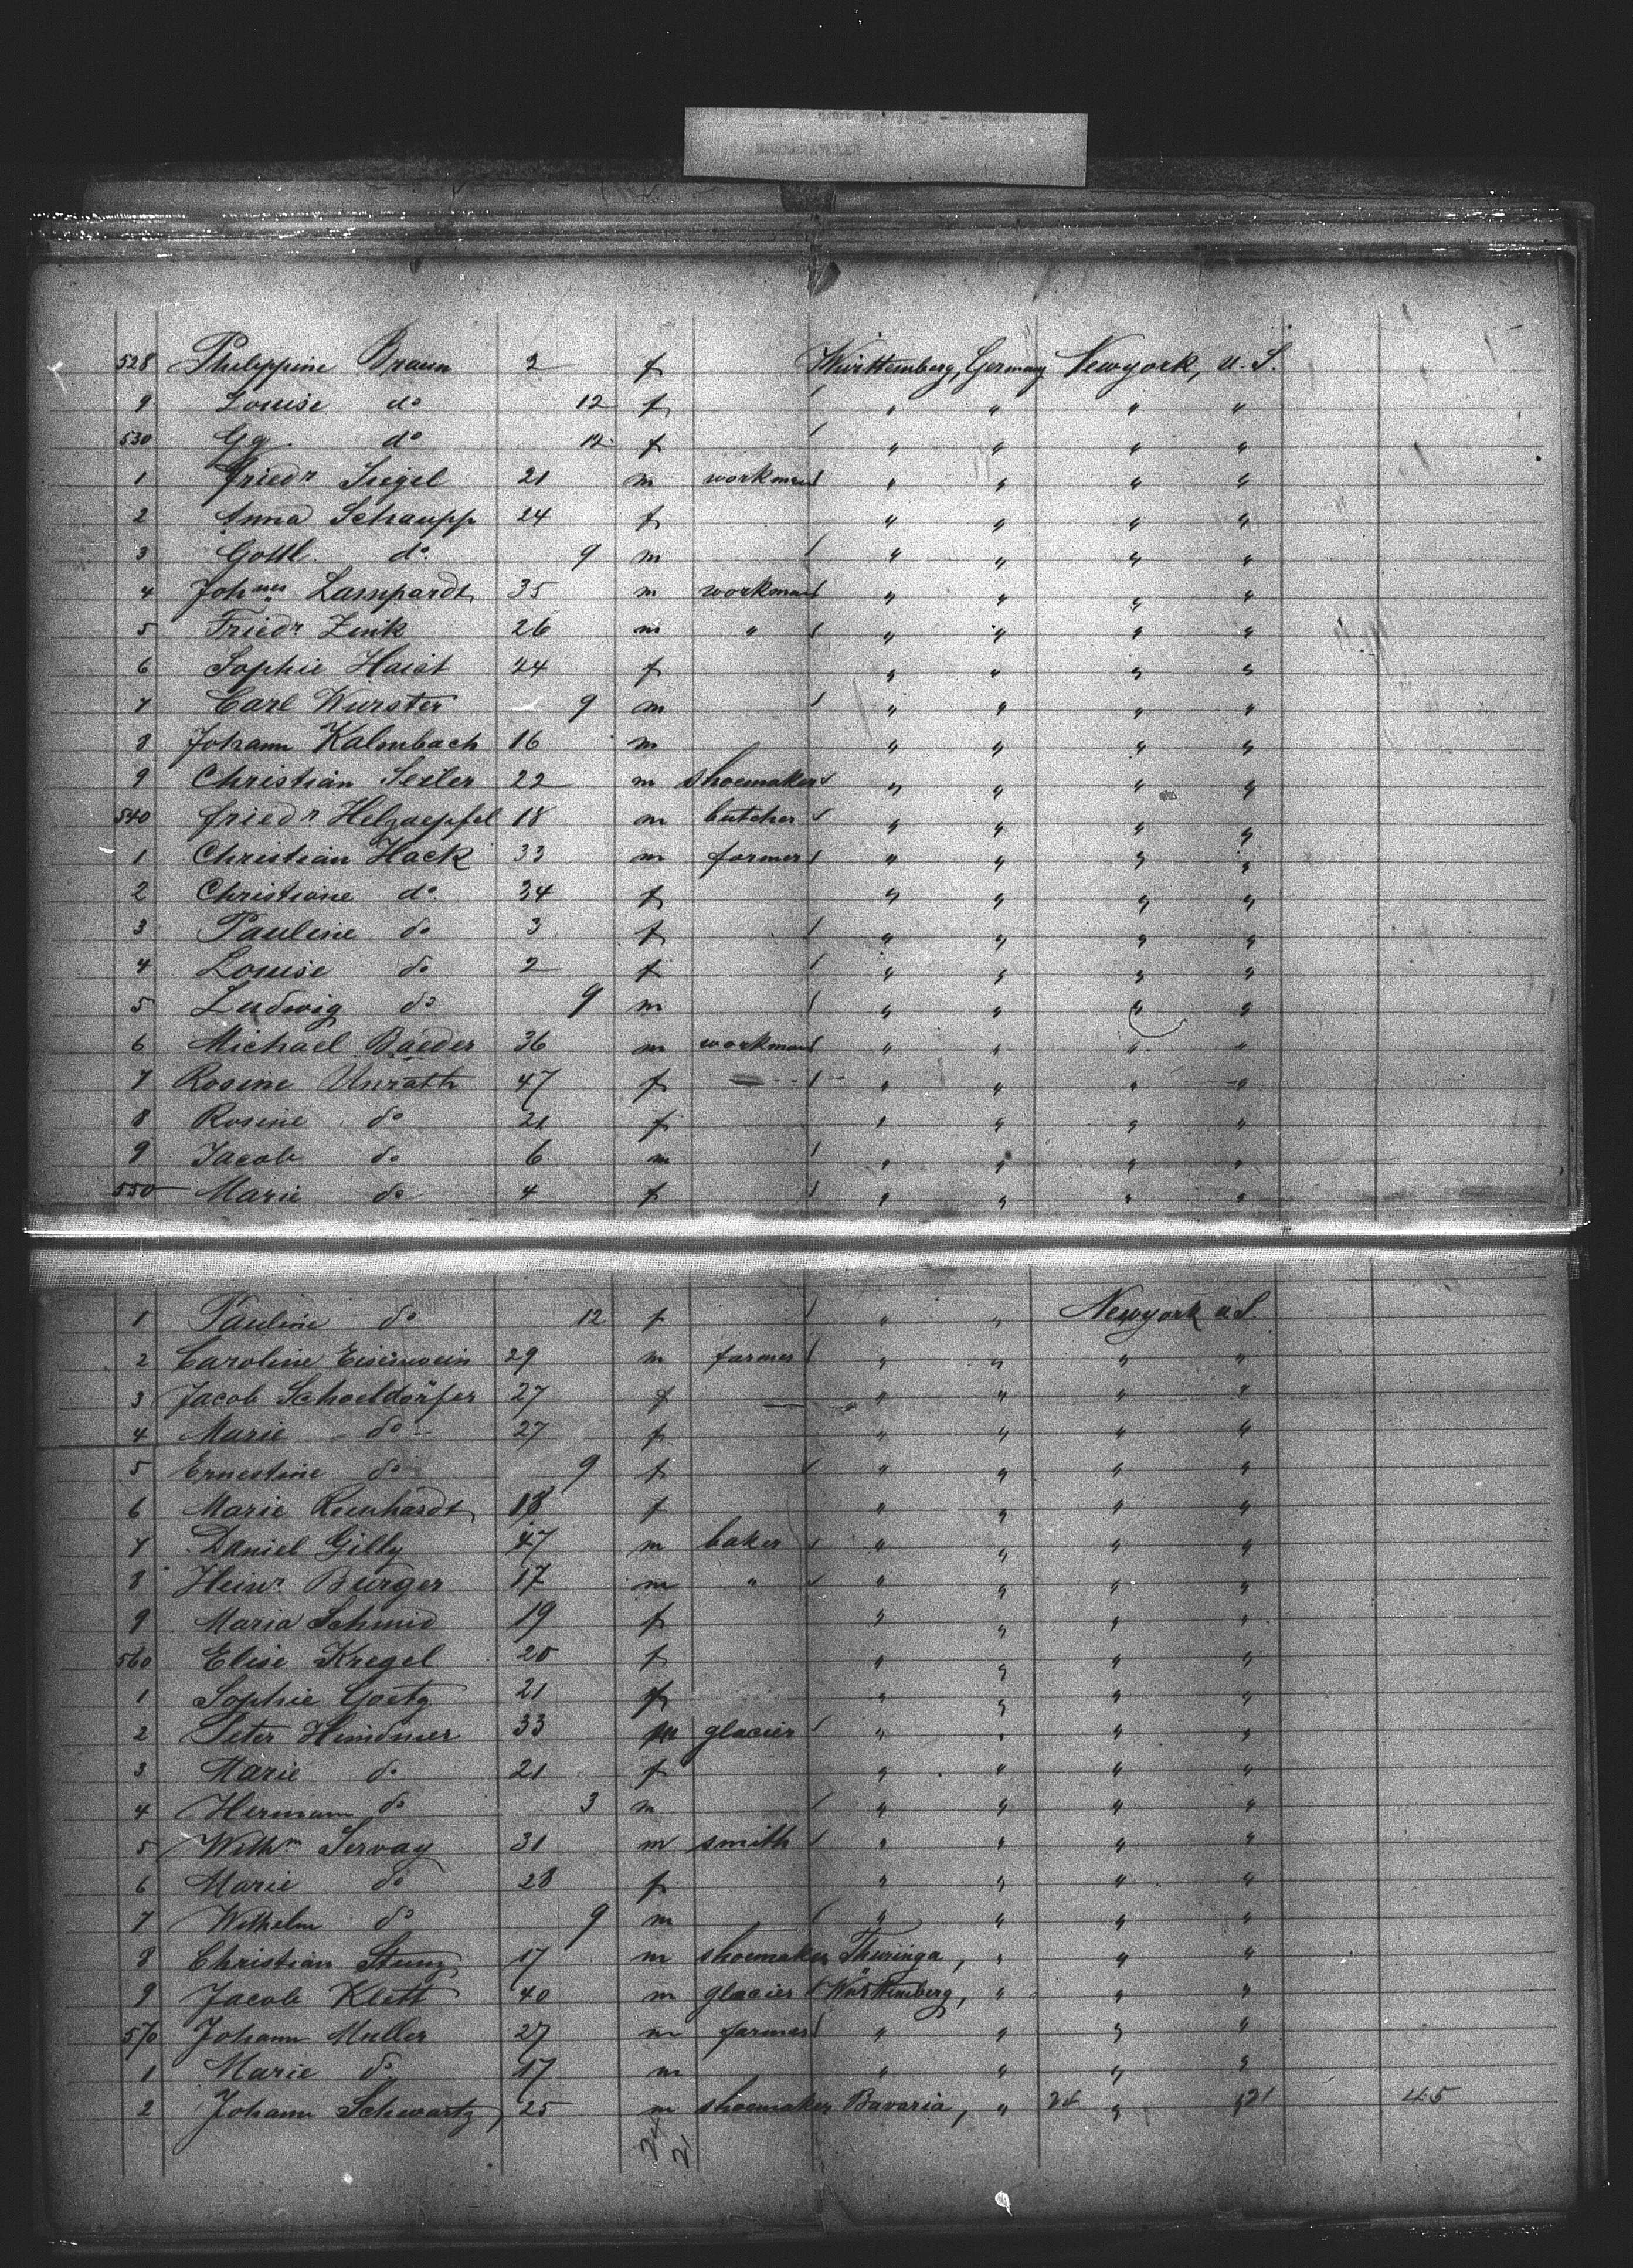 528 Philippine Braun 2 f Württemberg, Germany Newyork, U. S.
9 Louise do 12 f " " " "
530 Gg. do 12 f " " " "
1 Friedr Siegel 21 m workman " " " "
2 Anna Schaupp 24 f " " " "
3 Gottl. do. 9 m " " " "
4 Johnes Lampardt 35 m workman " " " "
5 Friedr Zink 26 m " " " " "
6 Sophie Haist 24 f " " " "
7 Carl Wurster 9 m " " " "
8 Johann Kalmbach 16 m " " " "
9 Christian Seiler 22 m shoemaker " " " "
540 Friedr Helzaepfel 18 m butcher " " " "
1 Christian Hack 33 m farmer " " " "
2 Christiane do. 34 f " " " "
3 Pauline do 3 f " " " "
4 Louise do 2 f " " " "
5 Ludwig do 9 m " " " "
6 Michael Baeder 36 m workman " " " "
7 Rosine Unrath 47 f " " " "
8 Rosine do 21 f " " " "
9 Jacob do 6 m " " " "
550 Marie do 4 f " " " "
1 Pauline do 12 f " " Newyork U.S.
2 Caroline Eisenwein 29 m farmer " " " "
3 Jacob Schoeldörfer 27 f " " " "
4 Marie do 27 f " " " "
5 Ernestine do 9 f " " " "
6 Marie Reinhardt 18 f " " " "
7 Daniel Gilly 47 m baker " " " "
8 Heinr Burger 17 m " " " " "
9 Maria Schmid 19 f " " " "
560 Elise Kregel 20 f " " " "
1 Sophie Goetz 21 f " " " "
2 Peter 33 m glacier " " " "
3 Marie do 21 f " " " "
4 Hermann do 3 m " " " "
5 Wilhm Servay 31 m smith " " " "
6 Marie do 28 f " " " "
7 Wilhelm do 9 m " " " "
8 Christian Stunz 17 m shoemaker Thuringa, " " "
9 Jacob Klett 40 m glacier Württemberg, " " "
570 Johann Muller 27 m farmer " " " "
1 Marie do 17 m " " " "
2 Johann Schwartz 25 m shoemaker Bavaria, " 24 " 21 45
24 21